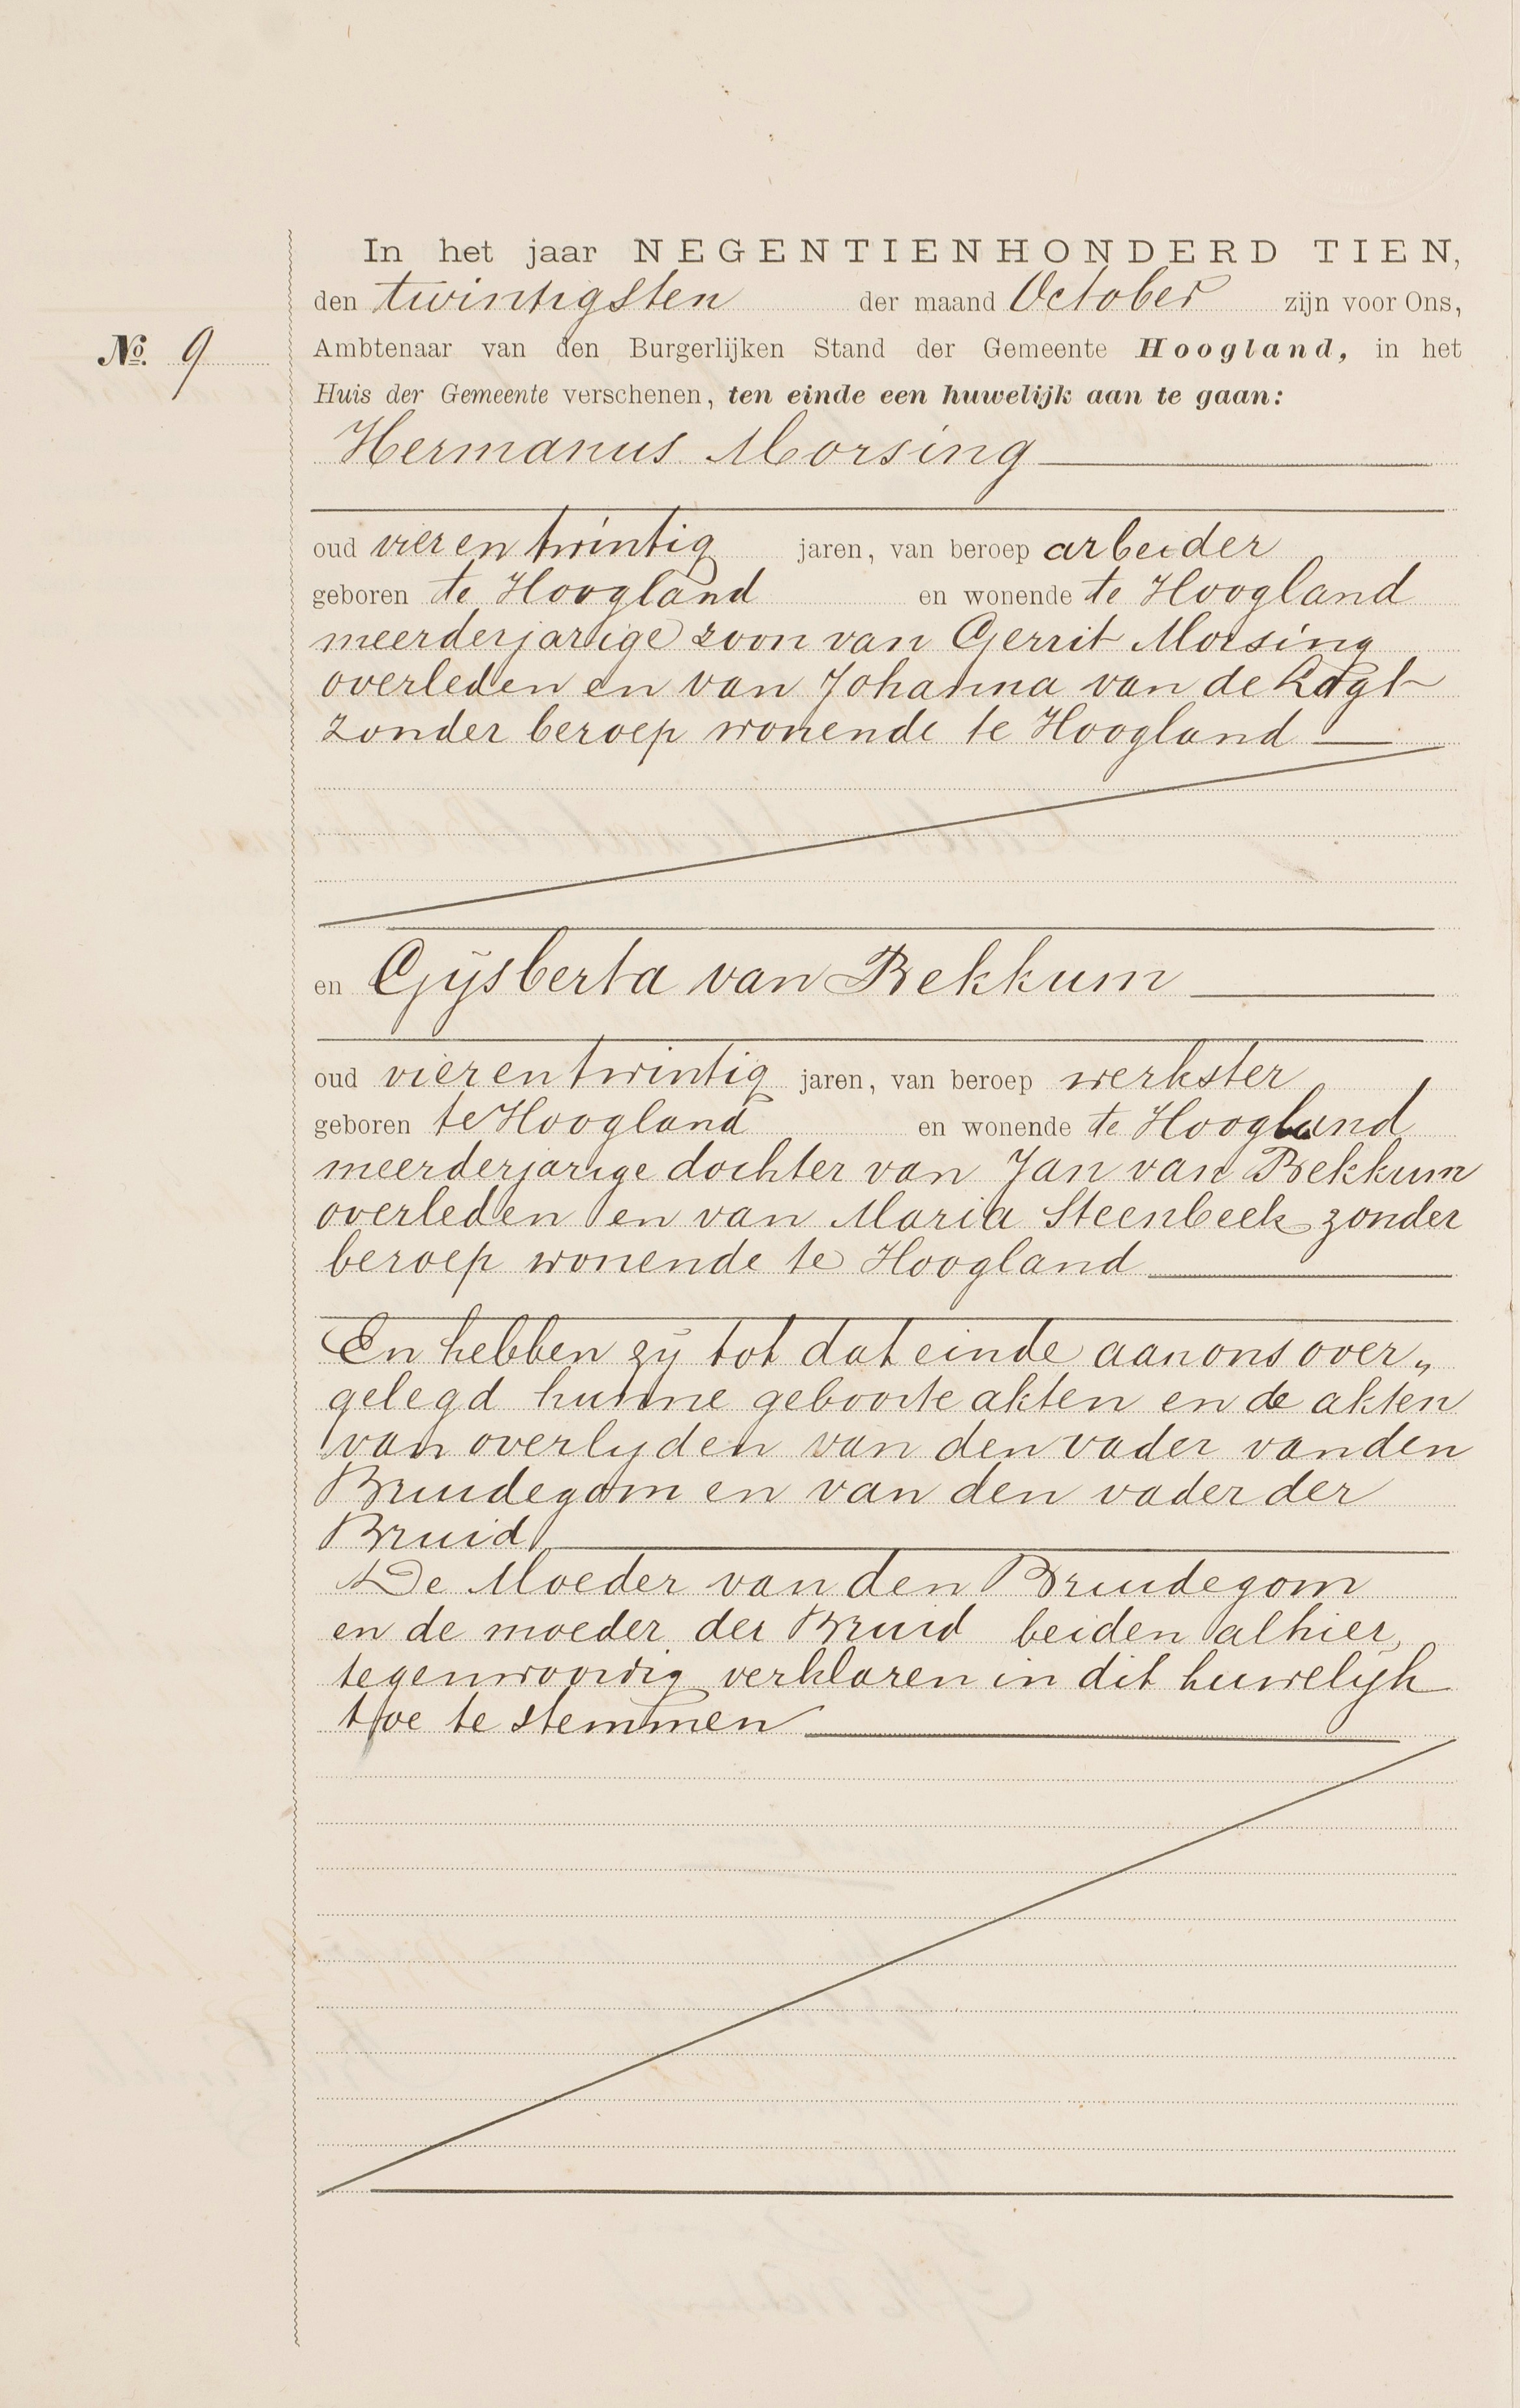 In het jaar NEGENTIENHONDERD TIEN,
den twintigsten der maand October zijn voor Ons,
No. 9
Ambtenaar van den Burgerlijken Stand der Gemeente Hoogland, in het
Huis der Gemeente verschenen, ten einde een huwelijk aan te gaan:
Hermanus Morsing
oud vier en twintig jaren, van beroep arbeider
geboren te Hoogland en wonende te Hoogland
meerderjarige zoon van Gerrit Morsing
overleden en van Johanna van de
zonder beroep wonende te Hoogland
en Gijsberta van Bekkum
oud vier en twintig jaren, van beroep werkster
geboren te Hoogland en wonende te Hoogland
meerderjarige dochter van Jan van Bekkum
overleden en van Maria Steenbeek zonder
beroep wonende te Hoogland
En hebben zij tot dat einde aan ons over„
gelegd hunne geboorte akten en de akten
van overlyden van den vader van den
Bruidegom en van den vader der
Bruid
De Moeder van den Bruidegom
en de moeder der Bruid beiden alhier
tegenwoordig verklaren in dit huwelijk
toe te stemmen